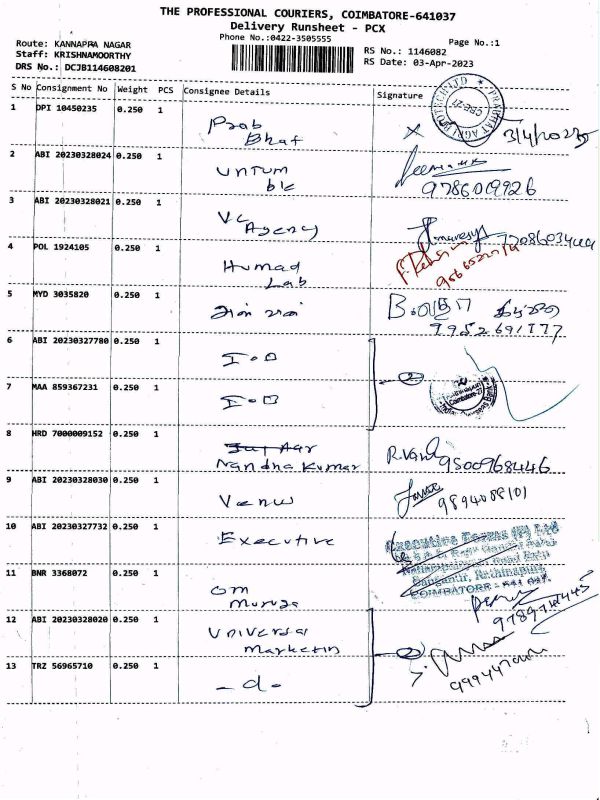 THE PROFESSIONAL COURIERS, COIMBATORE-641037
Delivery Runsheet - PCX
Phone No.:0422-3505555
Page No.:1
Route: KANNAPPA NAGAR
Staff: KRISHNAMOORTHY
DRS No.: DCJB114608201
RS No.: 1146082
RS Date: 03-Apr-2023
S No Consignment No Weight PCS Consignee Details Signature
1 DPI 10450235 0.250 1
Prab
Bhat
3/4/2023
2 ABI 20230328024 0.250 1
blc
9786019926
3 ABI 20230328021 0.250 1
Vc
Agency
4 POL 1924105 0.250 1
Humad
Lab
5 MYD 3035820 0.250 1
6 ABI 20230327780 0.250 1
I-O-B
7 MAA 859367231 0.250 1
I-O-B
2
Coimbatore-27
8 HRD 7000009152 0.250 1
Nandha Kumar
R.Vani
9500968446
9 ABI 20230328030 0.250 1
Venu
9894088101
10 ABI 20230327732 0.250 1
Executive
Executive Forms (P) Ltd
11 BNR 3368072 0.250 1
COIMBATORE - 641 027.
om
Muruga
12 ABI 20230328020 0.250 1
Universal
Marketin
2
13 TRZ 56965710 0.250 1
- d -